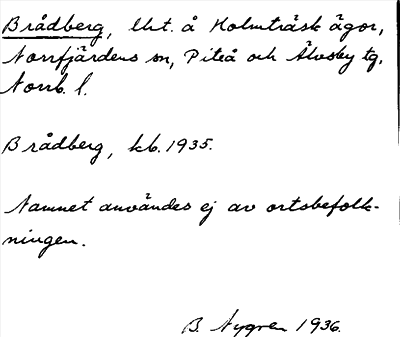 Brådberg, lht. å Holmträsk ägor,
Norrfjärdens sn, Piteå och Älvsby tg,
Norrb. l.
Brådberg, kb. 1935.
Namnet användes ej av ortsbefolk-
ningen.
B. Nygren 1936.